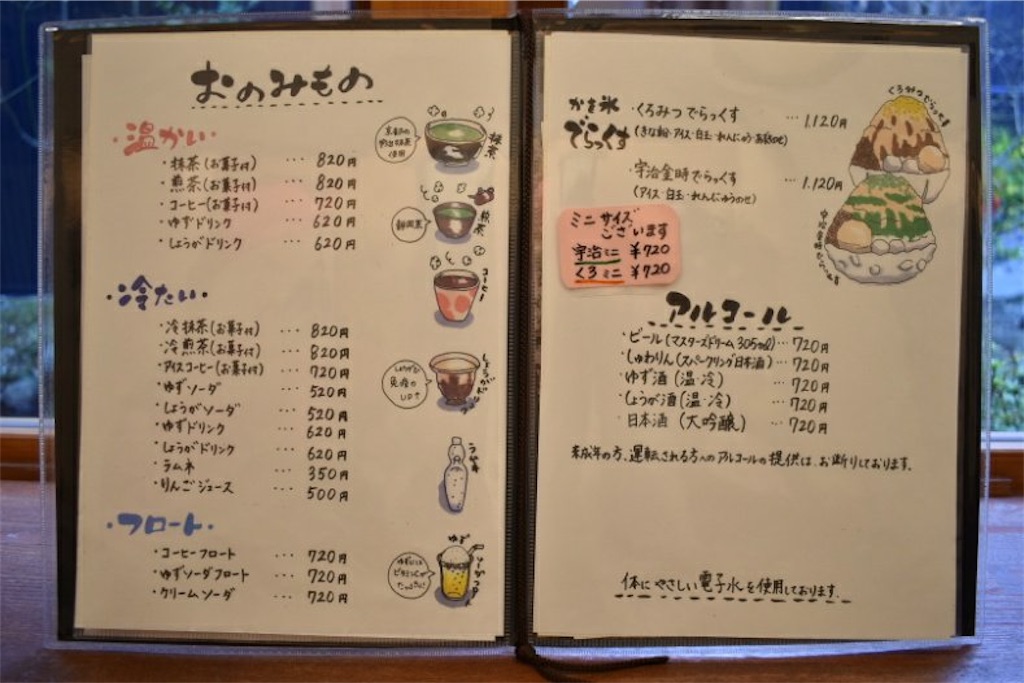 おのみもの
・温かい・
・抹茶(お菓子付) ・・・ 820円
・煎茶(お菓子付) ・・・ 820円
・コーヒー(お菓子付) ・・・ 720円
・ゆずドリンク ・・・ 620円
・しょうがドリンク ・・・ 620円
抹茶
煎茶
静岡茶
コーヒー
・冷たい・
・冷抹茶(お菓子付) ・・・ 820円
・冷煎茶(お菓子付) ・・・ 820円
・アイスコーヒー(お菓子付) ・・・ 720円
・ゆずソーダ ・・・ 520円
・しょうがソーダ ・・・ 520円
・ゆずドリンク ・・・ 620円
・しょうがドリンク ・・・ 620円
・ラムネ ・・・ 350円
・りんごジュース ・・・ 500円
しょうがで
免疫の
UP↑
ラムネ
・フロート・
・コーヒーフロート ・・・ 720円
・ゆずソーダフロート ・・・ 720円
・クリームソーダ ・・・ 720円
ゆず
ゆずには
ビタミンCが
かき氷
でらっくす
・くろみつでらっくす ・・・ 1,120円
(きな粉・アイス・白玉・れんにゅう・あずきのせ)
・宇治金時でらっくす ・・・ 1,120円
(アイス・白玉・れんにゅうのせ)
くろみつでらっくす
宇治金時でらっくす
ミニサイズ
ございます
宇治ミニ ¥720
くろミニ ¥720
アルコール
・ビール(マスターズドリーム 305ml)・・・ 720円
・しゅわりん(スパークリング日本酒)・・・ 720円
・ゆず酒(温・冷) ・・・ 720円
・しょうが酒(温・冷) ・・・ 720円
・日本酒(大吟醸) ・・・ 720円
未成年の方、運転される方へのアルコールの提供は、お断りしております。
体にやさしい電子水を使用しております。